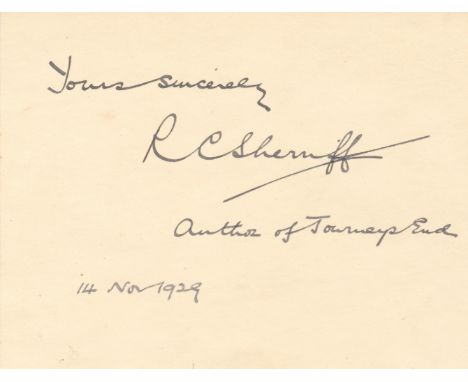 Yours sincerely
R C Sherriff
Author of Journeys End
14 Nov 1929